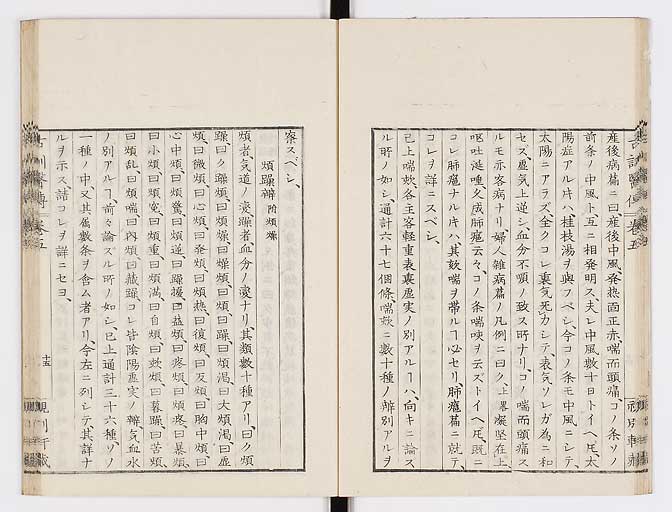 産後病篇ニ曰産後中風、発熱面正赤喘而頭痛、コノ条ソノ
前条ノ中風ト互ニ相発明ス夫レ中風、数十日トイヘ𪜈、太
陽症アル片ハ、桂枝湯ヲ與フベシ、今コノ条モ中風ニシテ、
太陽ニアラズ、全クコレ裏気死カシテ、表気ソレガ為ニ和
セズ、裏気上逆シ、血分不順ノ致ス所ナリ、コノ喘而頭痛ス
ルモ亦客病ナリ、婦人雑病篇ノ凡例ニ曰ク、上畧凝堅在上、
嘔吐涎唾久成肺癰云々、コノ条喘咳ヲ云ズトイヘ𪜈、既ニ
コレ肺癰ナル片ハ、其欬喘ヲ帯ルヿ必セリ肺癰篇ニ就テ、
コレヲ詳ニスベシ、
已上喘欬、各主客軽重表裏虚実ノ別アルヿハ、向キニ論ス
ル所ノ如シ、通計六十七個條喘欬ニ數十種ノ辨別アルヲ
察スベシ、
煩躁辨 附煩燥
煩者気道ノ変、躁者血分ノ変ナリ、其類數十種アリ、曰ク煩
躁、曰ク躁煩、曰煩燥、曰燥煩、曰躁、曰煩渇、曰大煩渇、曰虚
煩、曰微煩、曰心煩、曰発煩、曰煩熱、曰復煩、曰反煩、曰胸中煩、曰
心中煩、曰煩驚、曰煩逆、曰躁擾、曰益煩、曰疼煩、曰煩疼、曰暴煩、
曰小煩、曰煩寃、曰煩重、曰煩満、曰自煩、曰欬煩、曰暮躁、曰苦煩、
曰煩乱、曰煩喘、曰内煩、曰蔵躁、コレ皆陰陽虚実ノ辨、気血水
ノ別アルヿ、前々論ズル所ノ如シ、已上通計三十六種、ソノ
一種ノ中又其属數条ヲ含ム者アリ、今左ニ列シテ、其詳ナ
ルヲ示ス、諸コレヲ詳ニセヨ、